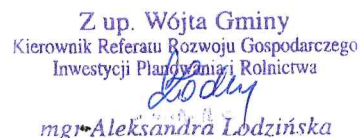 Z up. Wójta Gminy
Kierownik Referatu Rozwoju Gospodarczego
Inwestycji Planowania i Rolnictwa
mgr Aleksandra Łodzińska